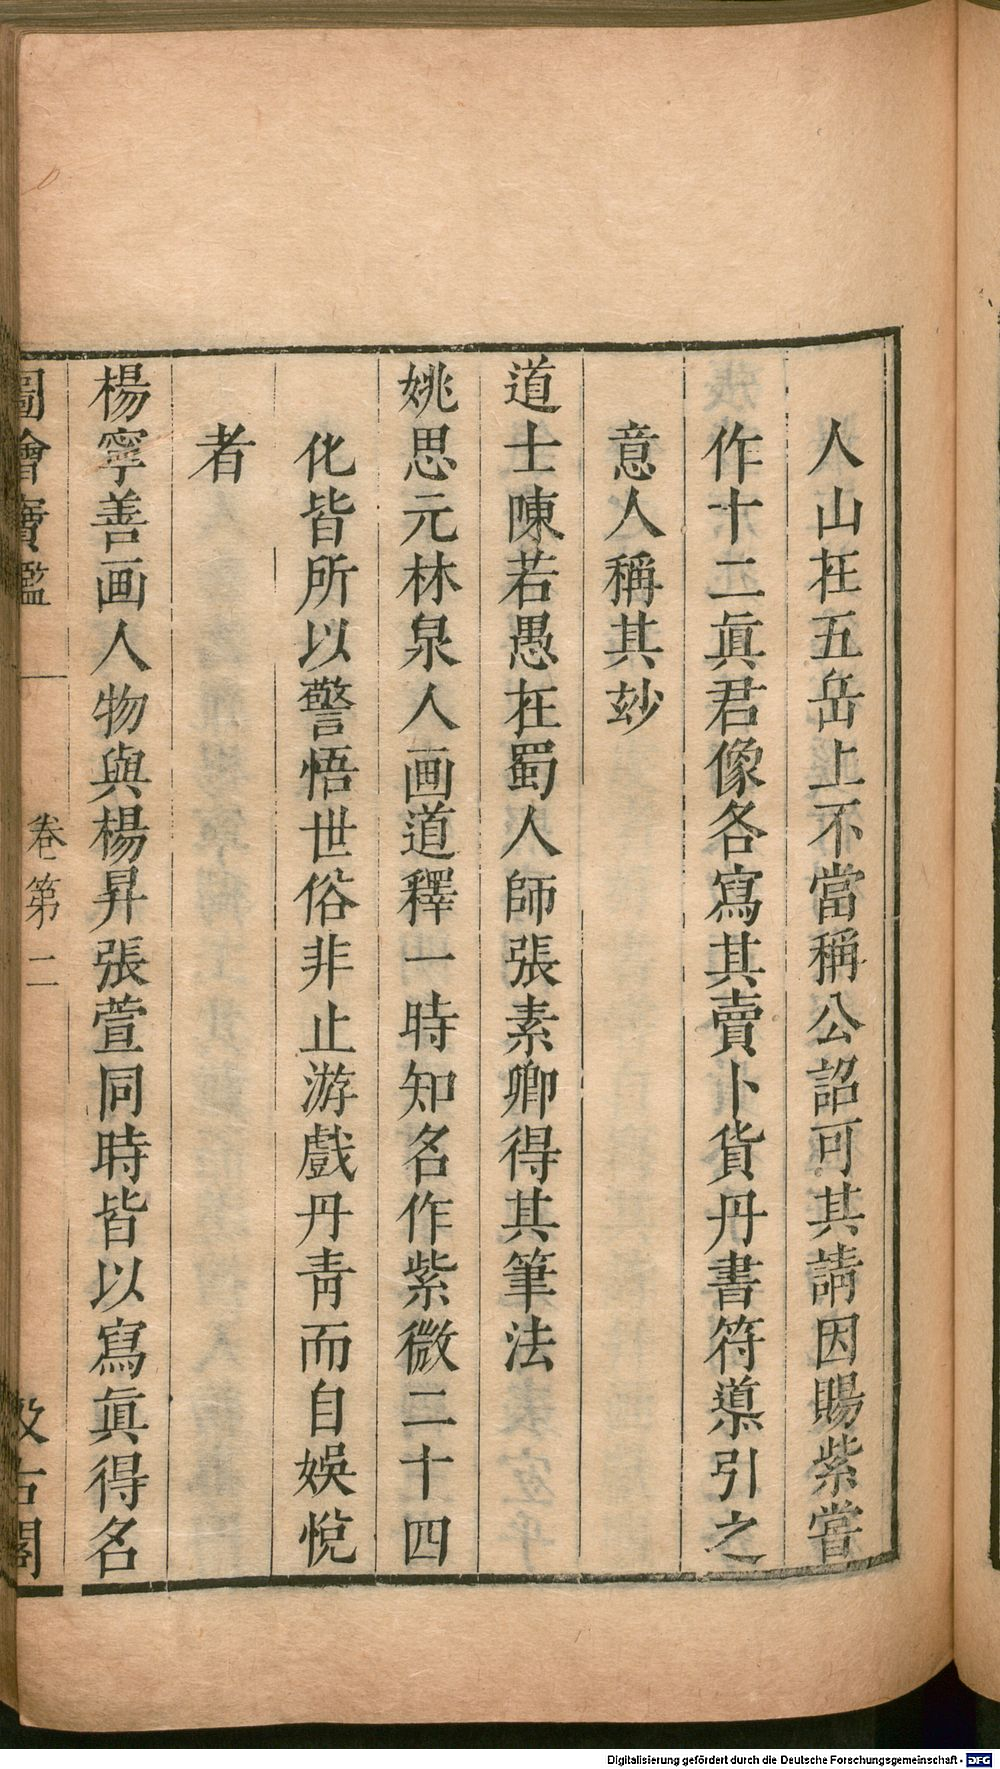 人山在五岳上不當稱公詔可其請因賜紫嘗
作十二眞君像各寫其賣卜货丹書符導引之
意人稱其玅
道士陳若愚在蜀人師張素卿得其筆法
姚思元林泉人画道釋一時知名作紫微二十四
化皆所以警悟世俗非止游戲丹青而自娛悅
者
楊寧善画人物與楊昇張萱同時皆以寫眞得名
圖繪寶鑑 卷第二 汲古閣
Digitalisierung gefördert durch die Deutsche Forschungsgemeinschaft - DFG